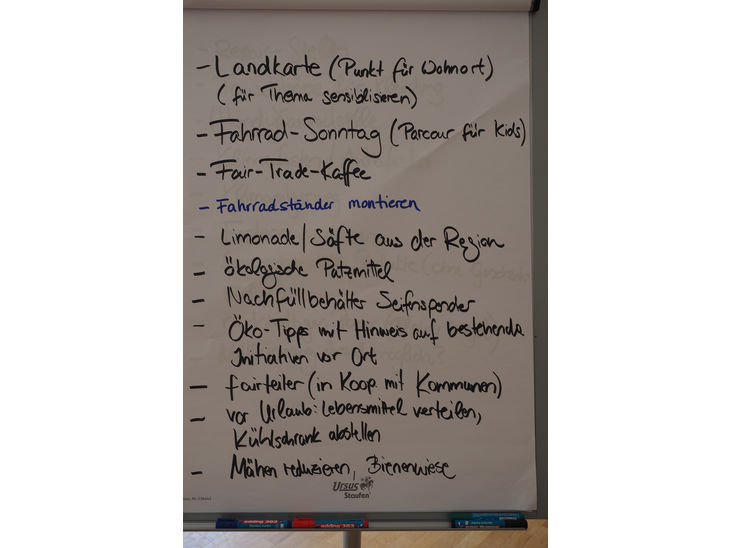 - Landkarte (Punkt für Wohnort)
(für Thema sensibilisieren)
- Fahrrad-Sonntag (Parcour für Kids)
- Fair-Trade-Kaffee
- Fahrradständer montieren
- Limonade/Säfte aus der Region
- ökologische Putzmittel
- Nachfüllbehälter Seifenspender
- Öko-Tipps mit Hinweis auf bestehende
Initiativen vor Ort
- fairteiler (in Koop. mit Kommunen)
- vor Urlaub: Lebensmittel verteilen,
Kühlschrank abstellen
- Mähen reduzieren, Bienenwiese
Ursus
Staufen
edding 383
edding 383